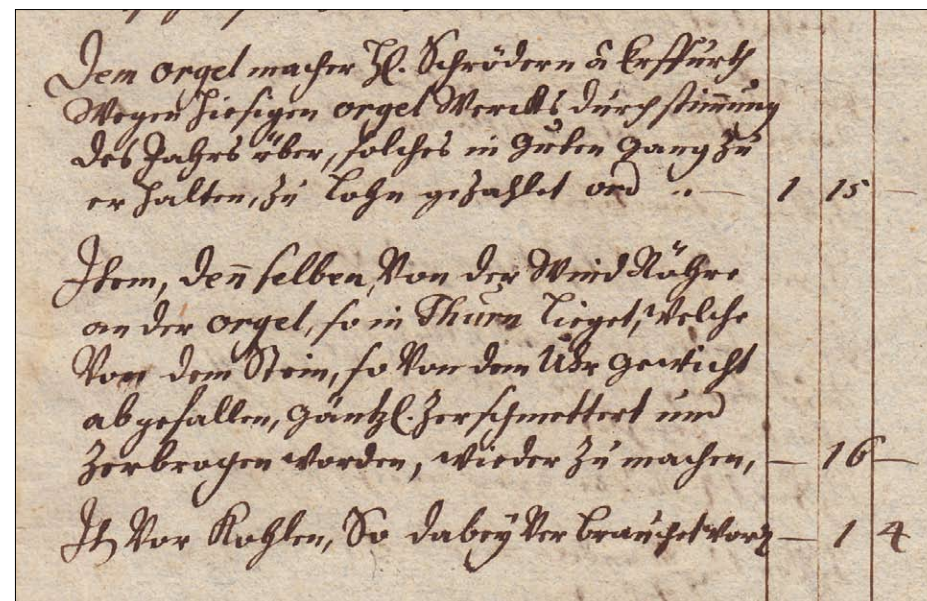 Dem orgelmacher H. Schrödern à Erffurth
Wegen hiesigen orgel Wercks durchstimmung
des Jahrs über, solches in guten gang zu
erhalten, zu lohn gezahlet — 1 15 —
Item, denselben, Von der Wind Röhre
an der orgel, so in Thurn lieget, welche
Von dem Stein, so Von dem Uhr gewicht
abgefallen, gäntzl. zerschmettert und
zerbrogen worden, wieder zu machen, — 16 —
It. Vor Kohlen, So dabey Verbrauchet word — 1 4